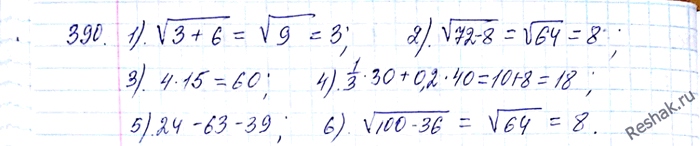 390. 1). √3+6 = √9 = 3; 2). √72-8 = √64 = 8;
3). 4·15 = 60; 4). 1/3·30+0,2·40=10+8=18;
5). 24-63-39; 6). √100-36 = √64 = 8.
Reshak.ru